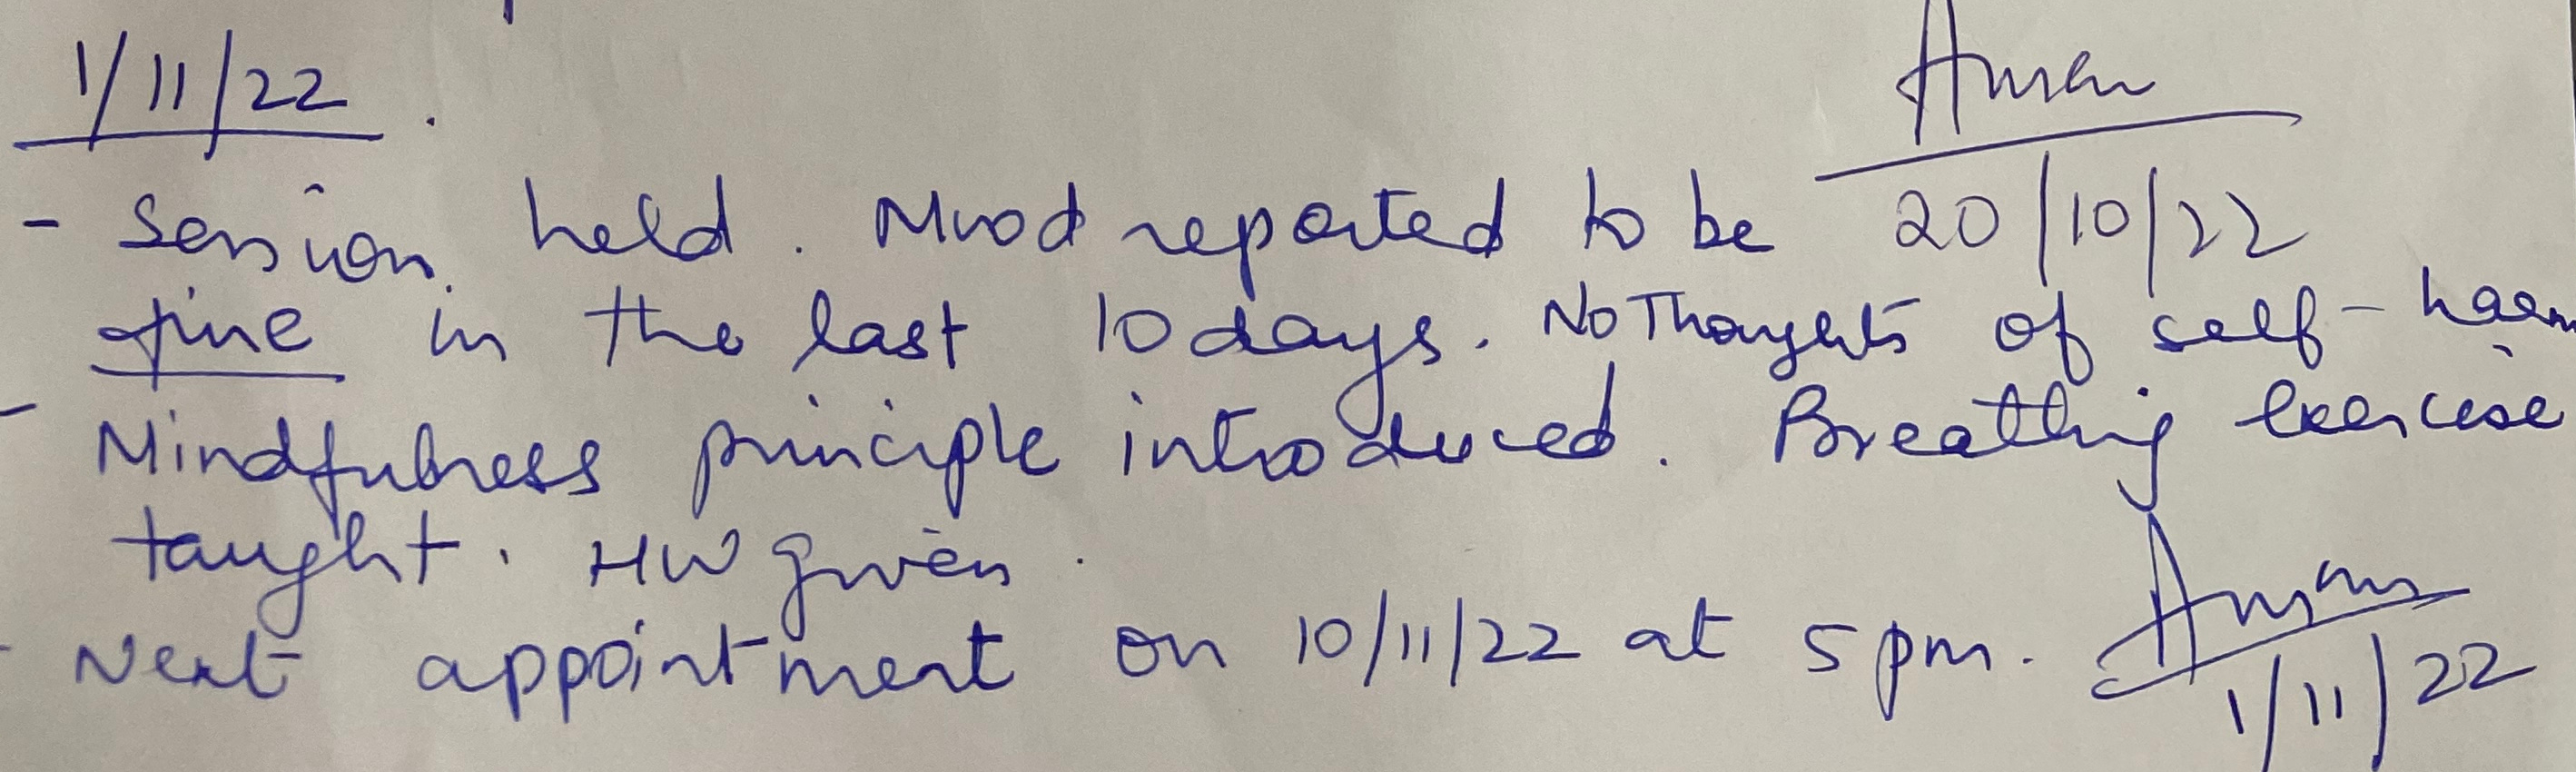 1/11/22.
20/10/22
- Session held. Mood reported to be
fine in the last 10 days. No Thoughts of self-harm
- Mindfulness principle introduced. Breathing exercise
taught. HW given.
- Next appointment on 10/11/22 at 5 pm.
1/11/22